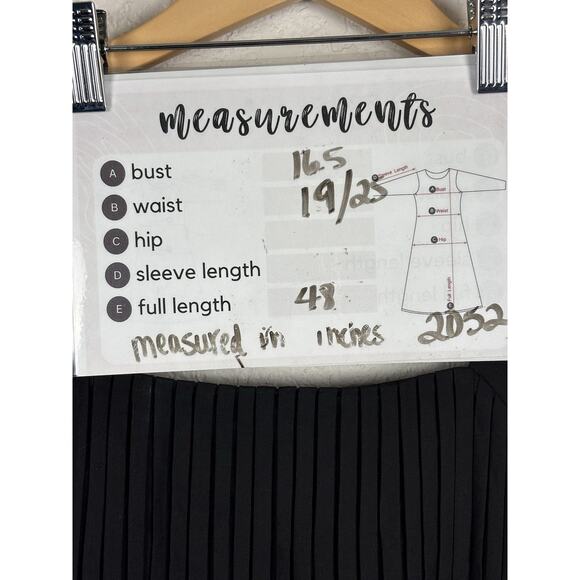 measurements
A bust 16.5
B waist 19/25
C hip
D sleeve length
E full length 48
measured in inches 2052
D Sleeve Length
A Bust
B Waist
C Hip
E Full Length